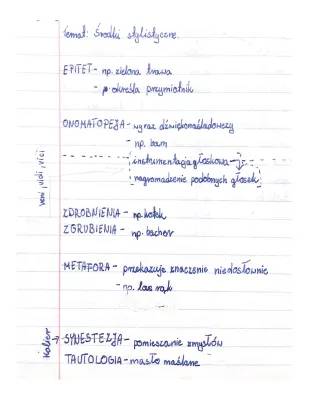 Temat: Środki stylistyczne.
EPITET - np. zielona trawa
- określa przymiotnik
ONOMATOPEJA - wyraz dźwiękonaśladowczy
- np. bam
instrumentacja głoskowa
nagromadzenie podobnych głosek
veni, vidi, vici
ZDROBNIENIA - np. kotek
ZGRUBIENIA - np.
METAFORA - przekazuje znaczenie niedosłownie
- np. las rąk
SYNESTEZJA - pomieszanie zmysłów
TAUTOLOGIA - masło maślane